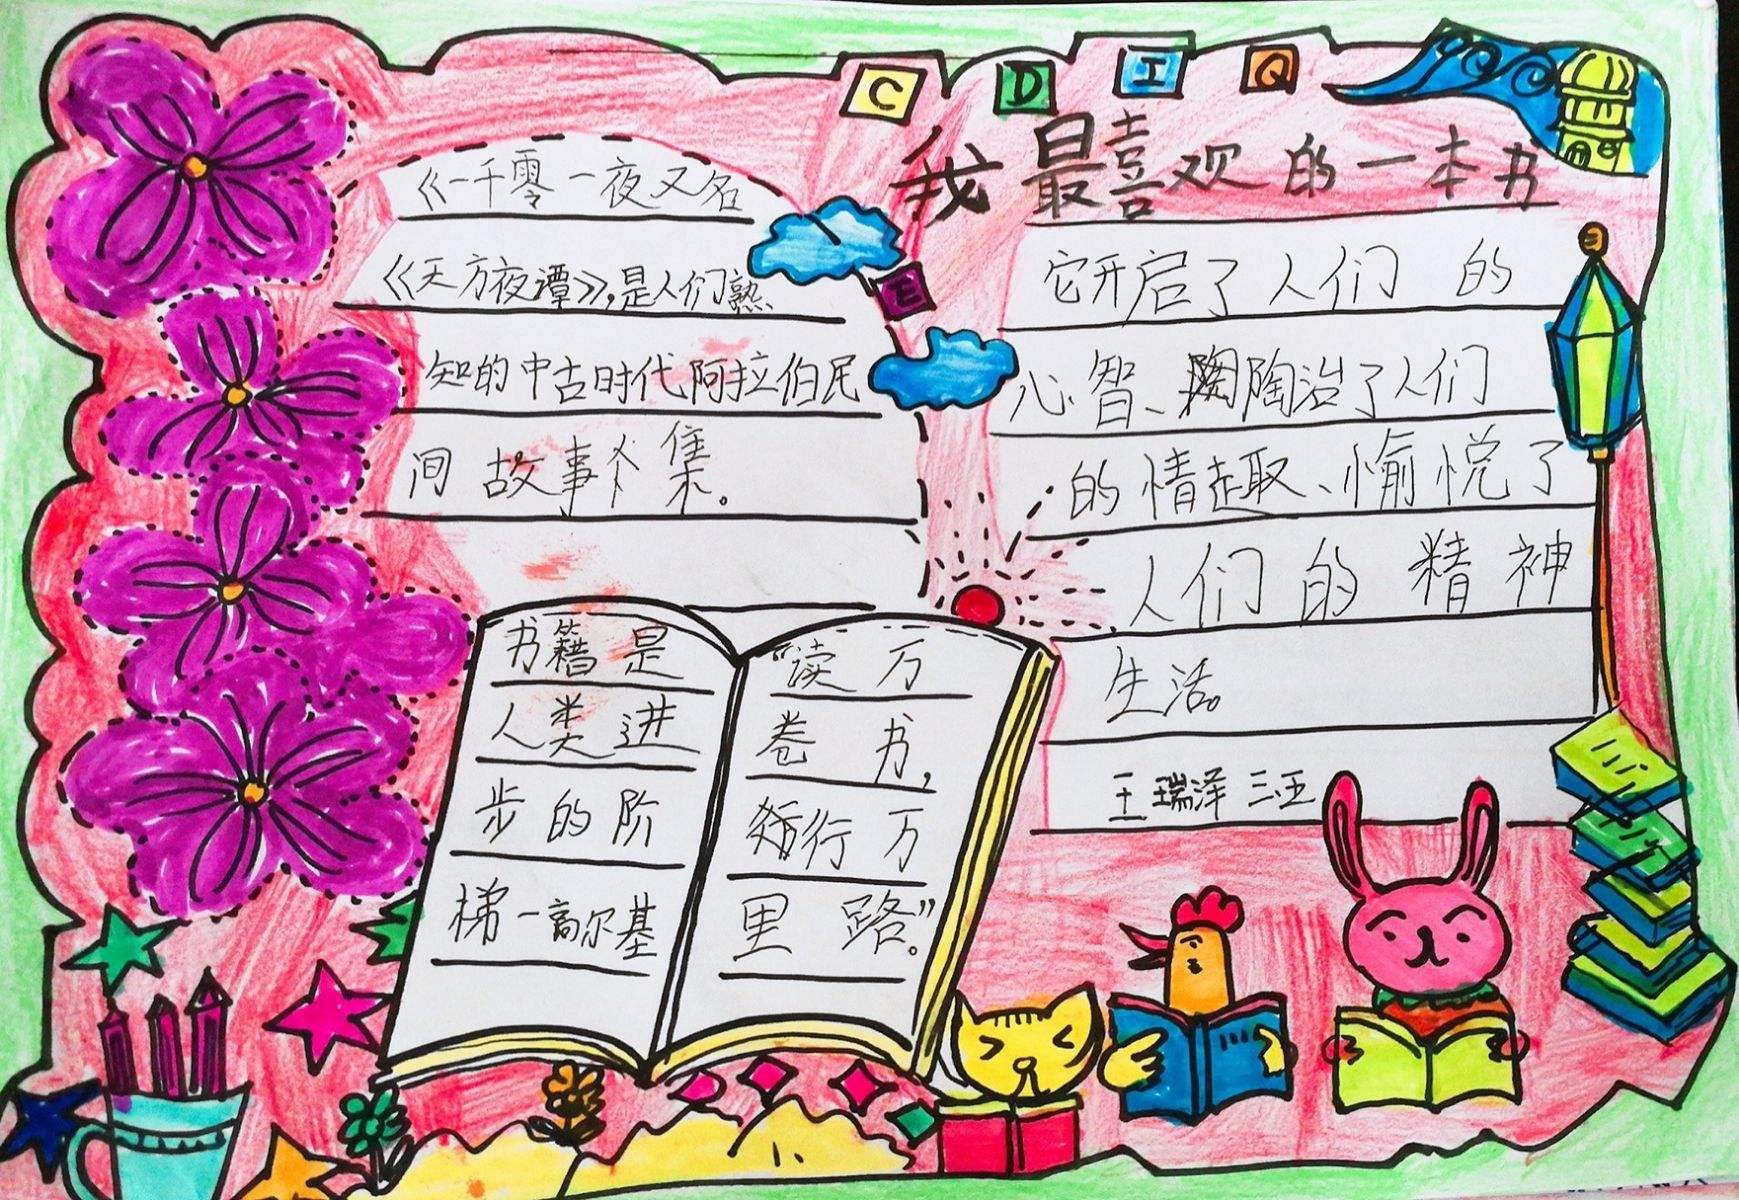 C D I Q
我最喜欢的一本书
《一千零一夜又名
《天方夜谭》,是人们熟
知的中古时代阿拉伯民
间故事集。
E
它开启了人们的
心智、陶治了人们
的情趣、愉悦了
人们的精神
生活。
王瑞泽 三.王
书籍是
人类进
步的阶
梯一高尔基
"读万
卷书,
行万
里路。"